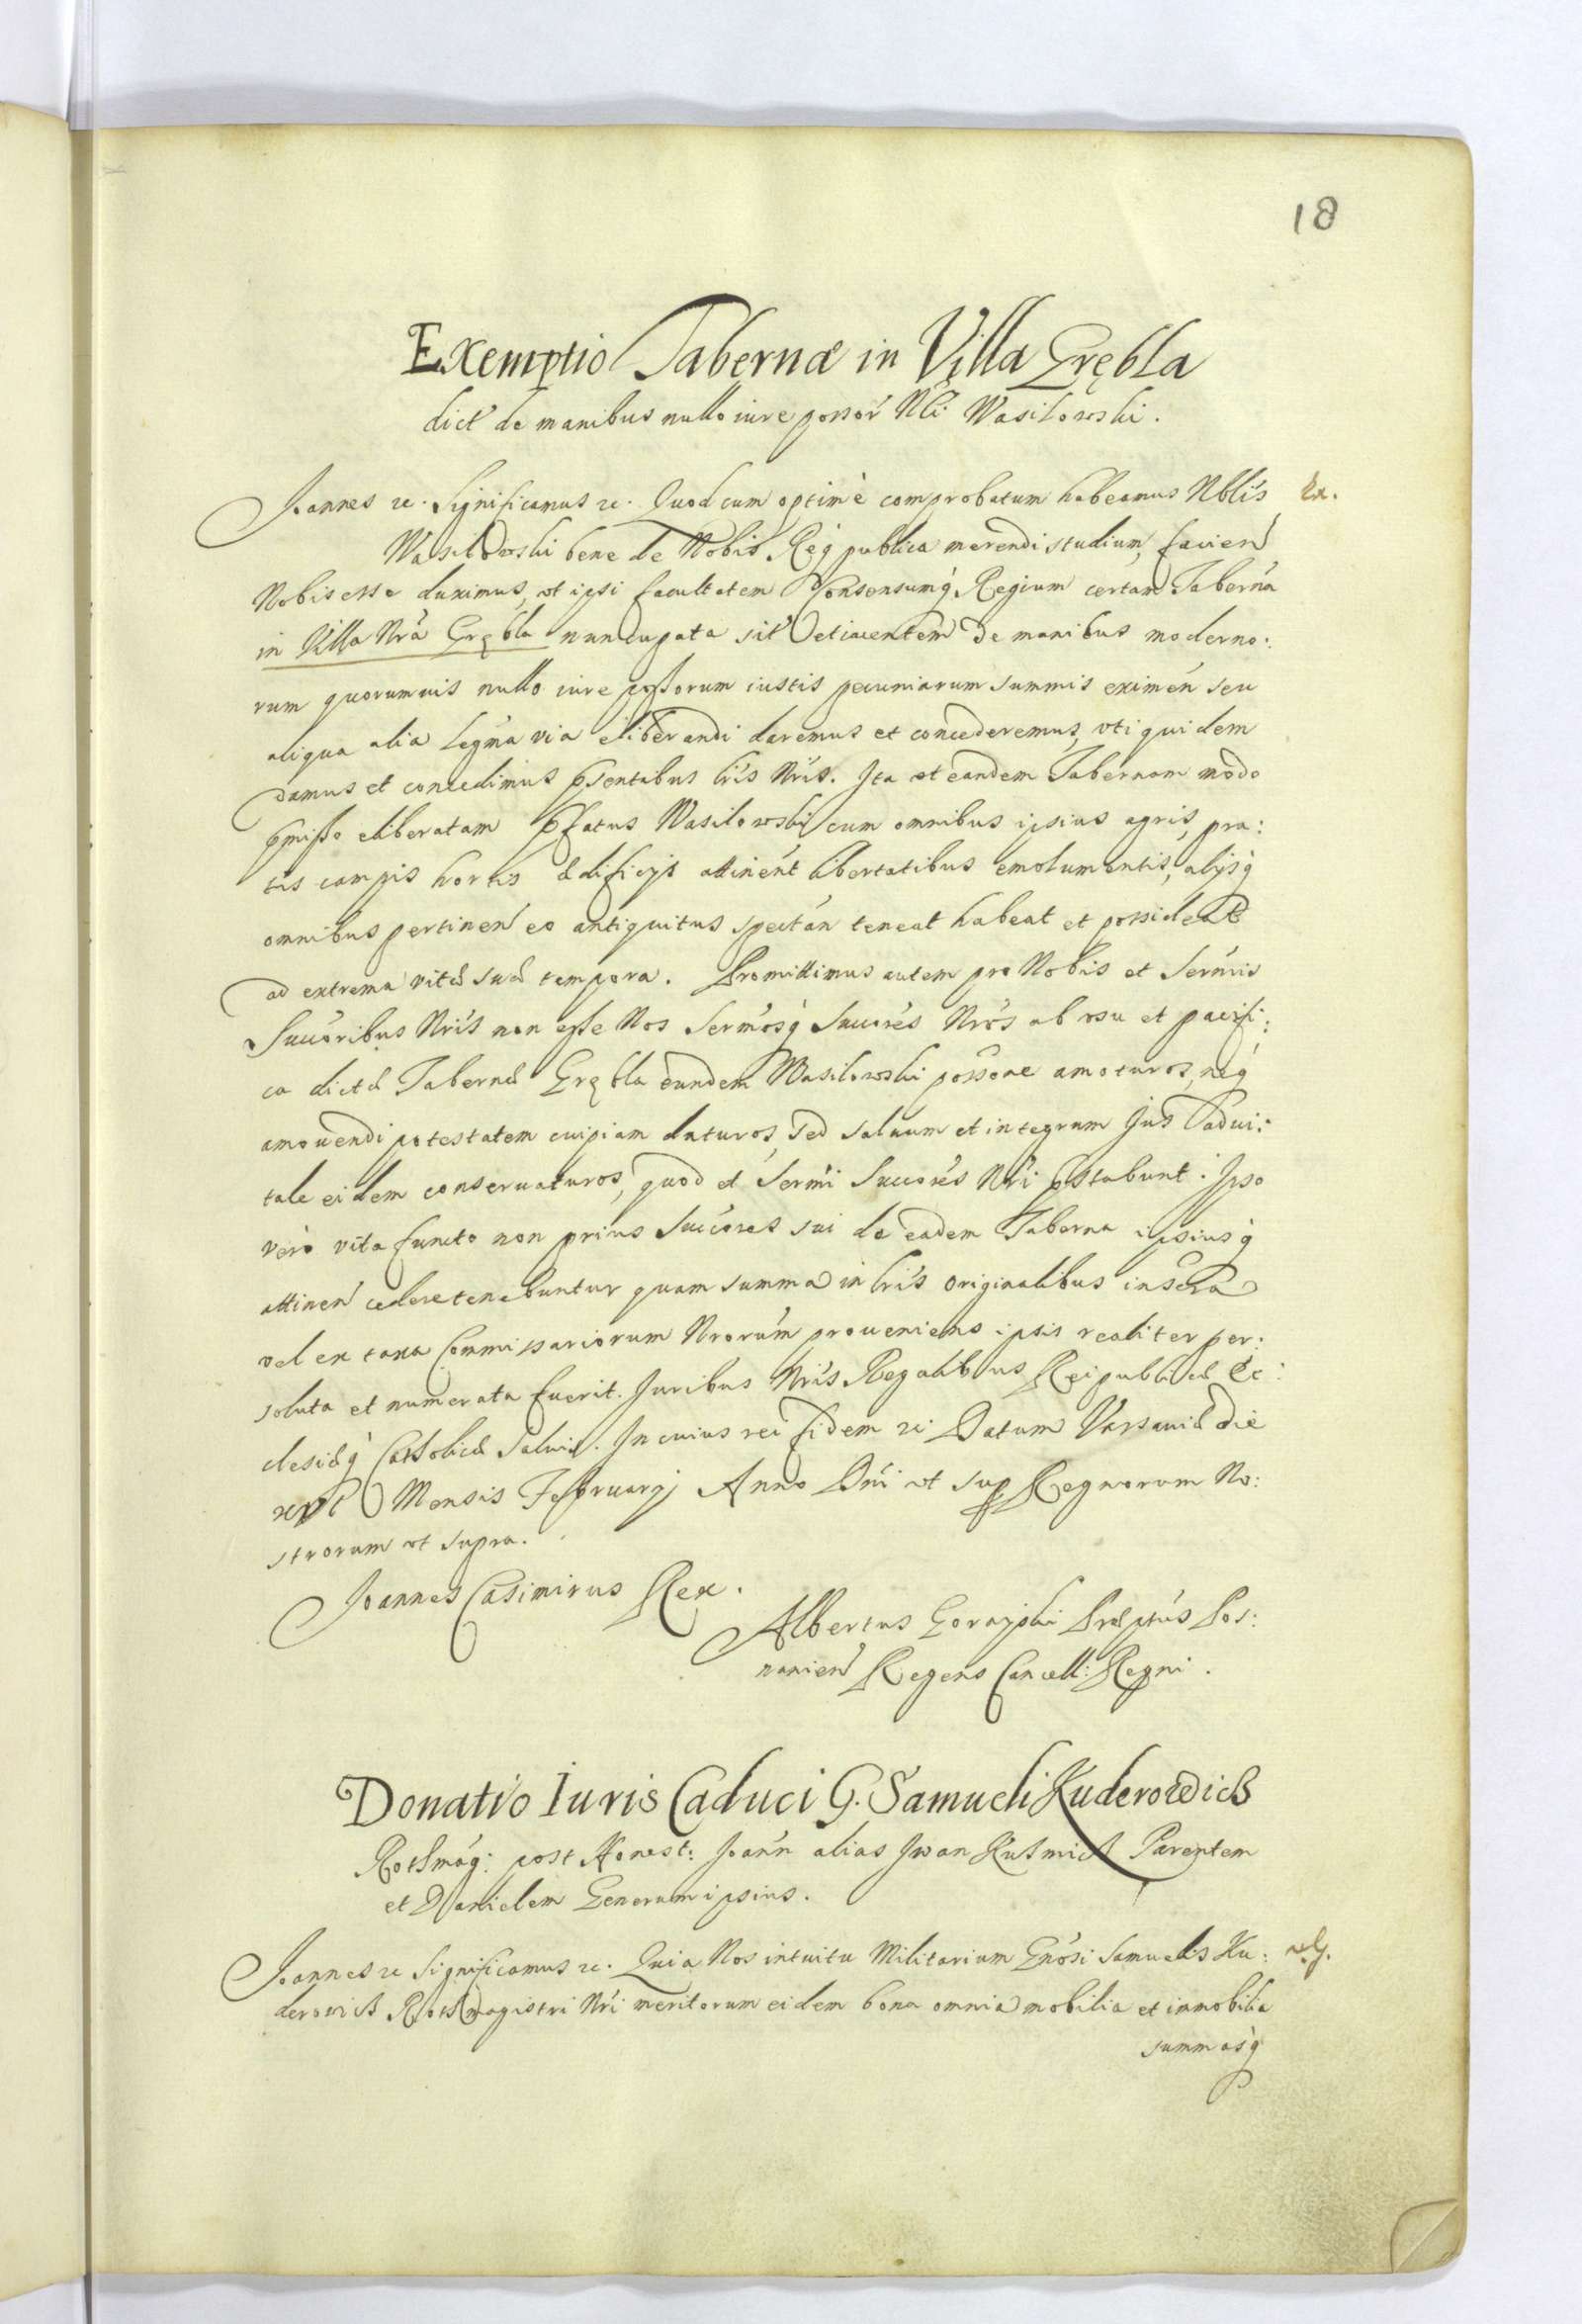 18
Exemptio Tabernæ in Villa Grębla
dict de manibus nullo iure possor Nli Wasilowski.
Joannes re. Significamus re. Quod cum optimè comprobatum habeamus Nblis Ex.
Wasilowski bene de Nobis Req publica merendi studium, facien
Nobis esse duximus, vt ipsi facultatem Consensumq Regium certam Taberna
in Villa Nra Grębla nuncupata sit et iacentem de manibus moderno:
rum quorumuis nullo iure possorum iustis pecuniarum summis eximen seu
aliqua alia legma via eliberandi daremus et concederemus, vti quidem
damus et concedimus psentibus lris Nris. Ita vt eandem Tabernam modo
pmisso eliberatam pfatus Wasilowski cum omnibus ipsius agris, pra:
tis campis hortis ædificijs attinent libertatibus emolumentis, alijsq
omnibus pertinen eo antiquitus spectan teneat habeat et possideat
ad extrema vitæ suæ tempora. Promittimus autem pro Nobis et Sermis
Succoribus Nris non esse Nos Sermosq Succores Nros ab vsu et pacifi:
ca dictæ Tabernæ Grębla eundem Wasilowski possone amoturos, neq
amouendi potestatem cuipiam daturos, sed saluum et integrum Jus adui:
tale eidem conseruaturos, quod et Sermi Succores Nri pstabunt. Ipso
verò vita functo non prius Succores sui de eadem Taberna ipsiusq
attinen cedere tenebuntur quam summa in lris originalibus inserta
vel ex taxa Commissariorum Nrorum proueniens ipsis realiter per:
soluta et numerata fuerit. Juribus Nris Regalibus Reipublicæ Ec:
clesiæq Catholicæ saluis. In cuius rei fidem re Datum Varsauiæ die
Mensis Februarij Anno Dni vt sup Regnorum No:
strorum vt supra.
Joannes Casimirus Rex.
Albertus Gorayski Præptus Pos:
nanien Regens Cancell: Regni.
Donatio Iuris Caduci G. Samueli Kuderowicz
Rothmag: post Honest: Joann alias Jwan Kuśmicz Parentem
et Danielem Generum ipsius.
Joannes re Significamus re. Quia Nos intuitu Militarium Gnosi Samuelis Ku:
derowicz Rothmagistri Nri meritorum eidem bona omnia mobilia et immobilia
summasq